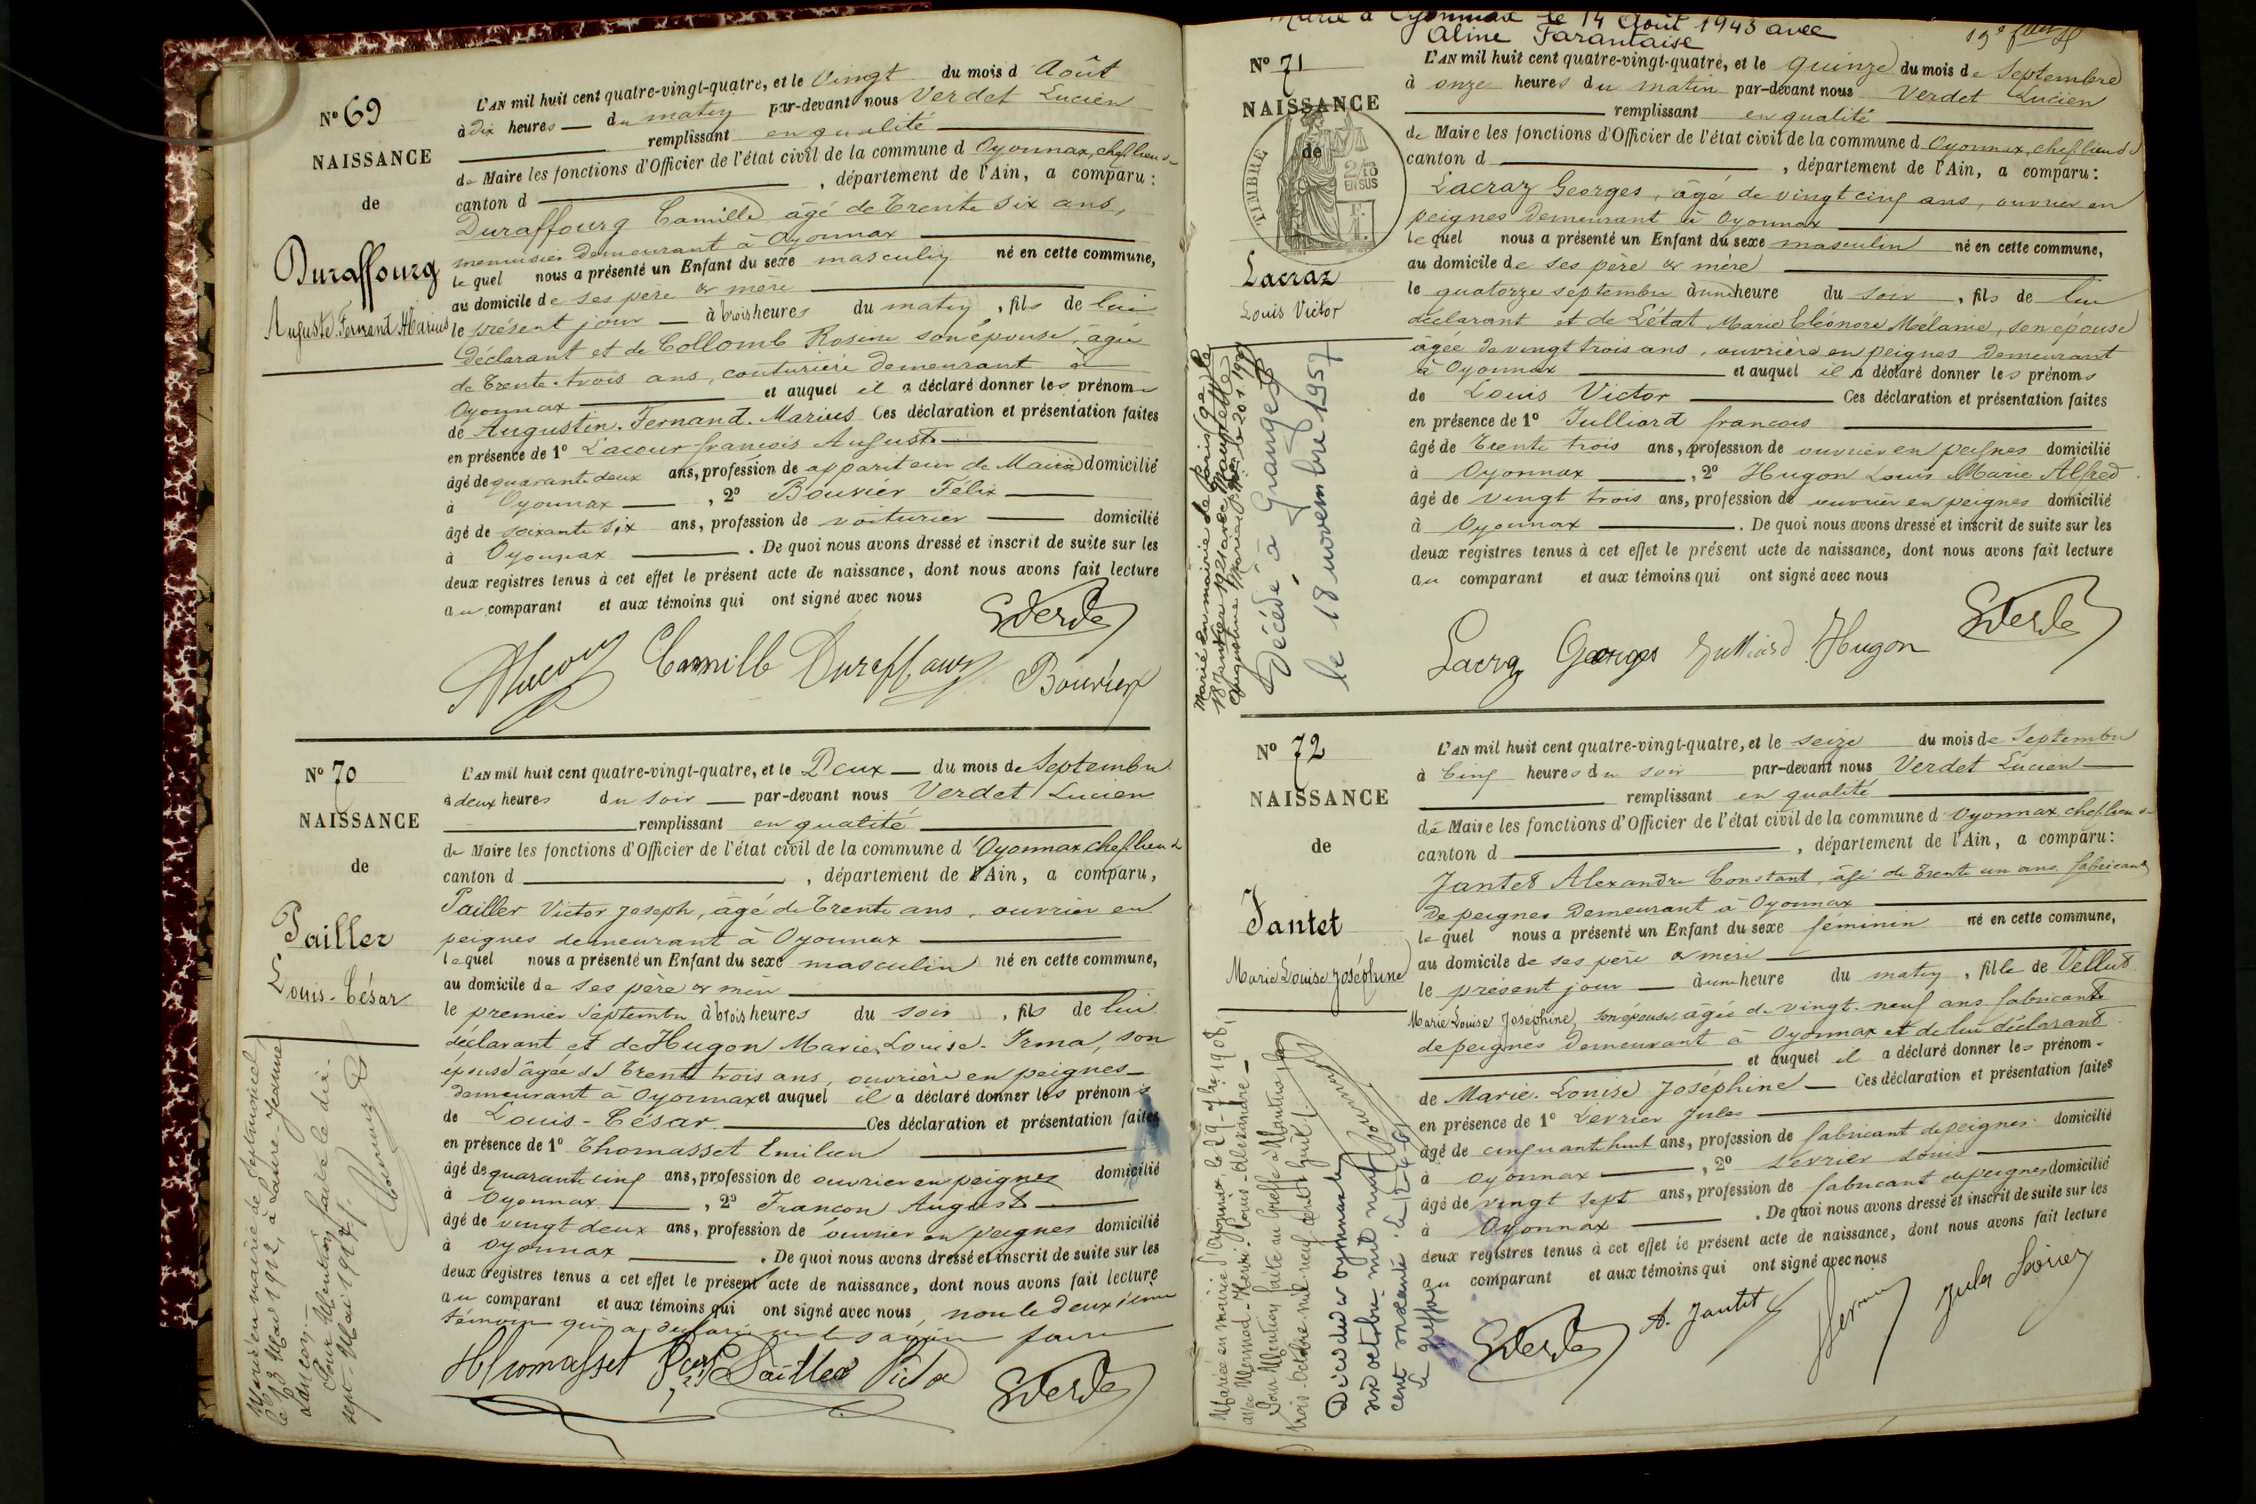 N° 69
NAISSANCE
de
Duraffourg
Auguste Fernand Marius
L'AN mil huit cent quatre-vingt-quatre, et le Vingt du mois d Août
à dix heures du matin par-devant nous Verdet Lucien
remplissant en qualité
de Maire les fonctions d'Officier de l'état civil de la commune d Oyonnax, chef lieu de
canton d , département de l'Ain, a comparu :
Duraffourg Camille âgé de Trente six ans,
menuisier demeurant à Oyonnax
lequel nous a présenté un Enfant du sexe masculin né en cette commune,
au domicile de ses père & mère
le présent jour à trois heures du matin, fils de lui
déclarant et de Collomb Rosine son épouse, âgée
de Trente-trois ans, couturière demeurant à
Oyonnax et auquel il a déclaré donner les prénoms
de Augustin. Fernand. Marius Ces déclaration et présentation faites
en présence de 1° Lacour françois Auguste
âgé de quarante deux ans, profession de appariteur de Mairie domicilié
à Oyonnax , 2° Bouvier Félix
âgé de soixante six ans, profession de voiturier domicilié
à Oyonnax . De quoi nous avons dressé et inscrit de suite sur les
deux registres tenus à cet effet le présent acte de naissance, dont nous avons fait lecture
au comparant et aux témoins qui ont signé avec nous
Camille Duraffourg Bouvier
N° 70
NAISSANCE
de
Tailler
Louis-César
L'AN mil huit cent quatre-vingt-quatre, et le Deux du mois de Septembre
à deux heures du soir par-devant nous Verdet Lucien
remplissant en qualité
de Maire les fonctions d'Officier de l'état civil de la commune d'Oyonnax chef lieu de
canton d , département de l'Ain, a comparu,
Tailler Victor Joseph, âgé de Trente ans, ouvrier en
peignes demeurant à Oyonnax
lequel nous a présenté un Enfant du sexe masculin né en cette commune,
au domicile de ses père & mère
le premier Septembre à trois heures du soir, fils de lui
déclarant et de Hugon Marie, Louise. Irma, son
épouse âgée de Trente trois ans, ouvrière en peignes
demeurant à Oyonnax et auquel il a déclaré donner les prénoms
de Louis-César. Ces déclaration et présentation faites
en présence de 1° Thomasset Emilien
âgé de quarante cinq ans, profession de ouvrier en peignes domicilié
à Oyonnax , 2° Françon Auguste
âgé de vingt deux ans, profession de ouvrier en peignes domicilié
à Oyonnax . De quoi nous avons dressé et inscrit de suite sur les
deux registres tenus à cet effet le présent acte de naissance, dont nous avons fait lecture
au comparant et aux témoins qui ont signé avec nous, non le deuxième
témoin qui a déclaré ne le savoir faire
Thomasset Victor
Marié en mairie de
le 23 Mars 1912, à Laure-Jeanne
Lançon.
Pour Mention faite le dix-
sept-Mai 1912.
Marié à Oyonnax le 14 Août 1943 avec
Aline Tarantaise
N° 71
NAISSANCE
de
TIMBRE
2/10
EN SUS
Lacraz
Louis Victor
L'AN mil huit cent quatre-vingt-quatre, et le quinze du mois de Septembre
à onze heures du matin par-devant nous Verdet Lucien
remplissant en qualité
de Maire les fonctions d'Officier de l'état civil de la commune d Oyonnax, chef lieu de
canton d , département de l'Ain, a comparu :
Lacraz Georges, âgé de vingt cinq ans, ouvrier en
peignes demeurant à Oyonnax
lequel nous a présenté un Enfant du sexe masculin né en cette commune,
au domicile de ses père & mère
le quatorze septembre à une heure du soir, fils de lui
déclarant et de Létat, Marie Eléonore Mélanie, son épouse
âgée de vingt trois ans, ouvrière en peignes demeurant
à Oyonnax et auquel il a déclaré donner les prénoms
de Louis Victor Ces déclaration et présentation faites
en présence de 1° Julliard françois
âgé de Trente trois ans, profession de ouvrier en peignes domicilié
à Oyonnax , 2° Hugon Louis Marie Alfred
âgé de vingt trois ans, profession de ouvrier en peignes domicilié
à Oyonnax . De quoi nous avons dressé et inscrit de suite sur les
deux registres tenus à cet effet le présent acte de naissance, dont nous avons fait lecture
au comparant et aux témoins qui ont signé avec nous
Lacraz Georges Julliard Hugon
Marié en mairie de
Décédé à Granges
le 18 novembre 1957
N° 72
NAISSANCE
de
Jantet
Marie Louise Joséphine
L'AN mil huit cent quatre-vingt-quatre, et le seize du mois de Septembre
à Cinq heures du soir par-devant nous Verdet Lucien
remplissant en qualité
de Maire les fonctions d'Officier de l'état civil de la commune d Oyonnax, chef lieu de
canton d , département de l'Ain, a comparu :
Jantet Alexandre Constant, âgé de Trente un ans, fabricant
de peignes demeurant à Oyonnax
lequel nous a présenté un Enfant du sexe féminin né en cette commune,
au domicile de ses père & mère
le présent jour à une heure du matin, fille de Vellut
Marie Louise Joséphine, son épouse âgée de vingt-neuf ans fabricante
de peignes demeurant à Oyonnax et de lui déclarant
et auquel il a déclaré donner les prénoms
de Marie. Louise Joséphine Ces déclaration et présentation faites
en présence de 1° Levrier Jules
âgé de cinquante huit ans, profession de fabricant de peignes domicilié
à Oyonnax , 2° Levrier Louis
âgé de vingt sept ans, profession de fabricant de peignes domicilié
à Oyonnax . De quoi nous avons dressé et inscrit de suite sur les
deux registres tenus à cet effet le présent acte de naissance, dont nous avons fait lecture
au comparant et aux témoins qui ont signé avec nous
A. Jantet
Mariée en mairie d'Oyonnax le 29-7bre 1908,
avec Mermod-Henri-Louis-Alexandre
Pour Mention faite au Greffe à Nantua le
trois-Octobre-mil neuf cent huit.
Décédée à Oyonnax le
six octobre mil neuf
cent soixante
Le greffier